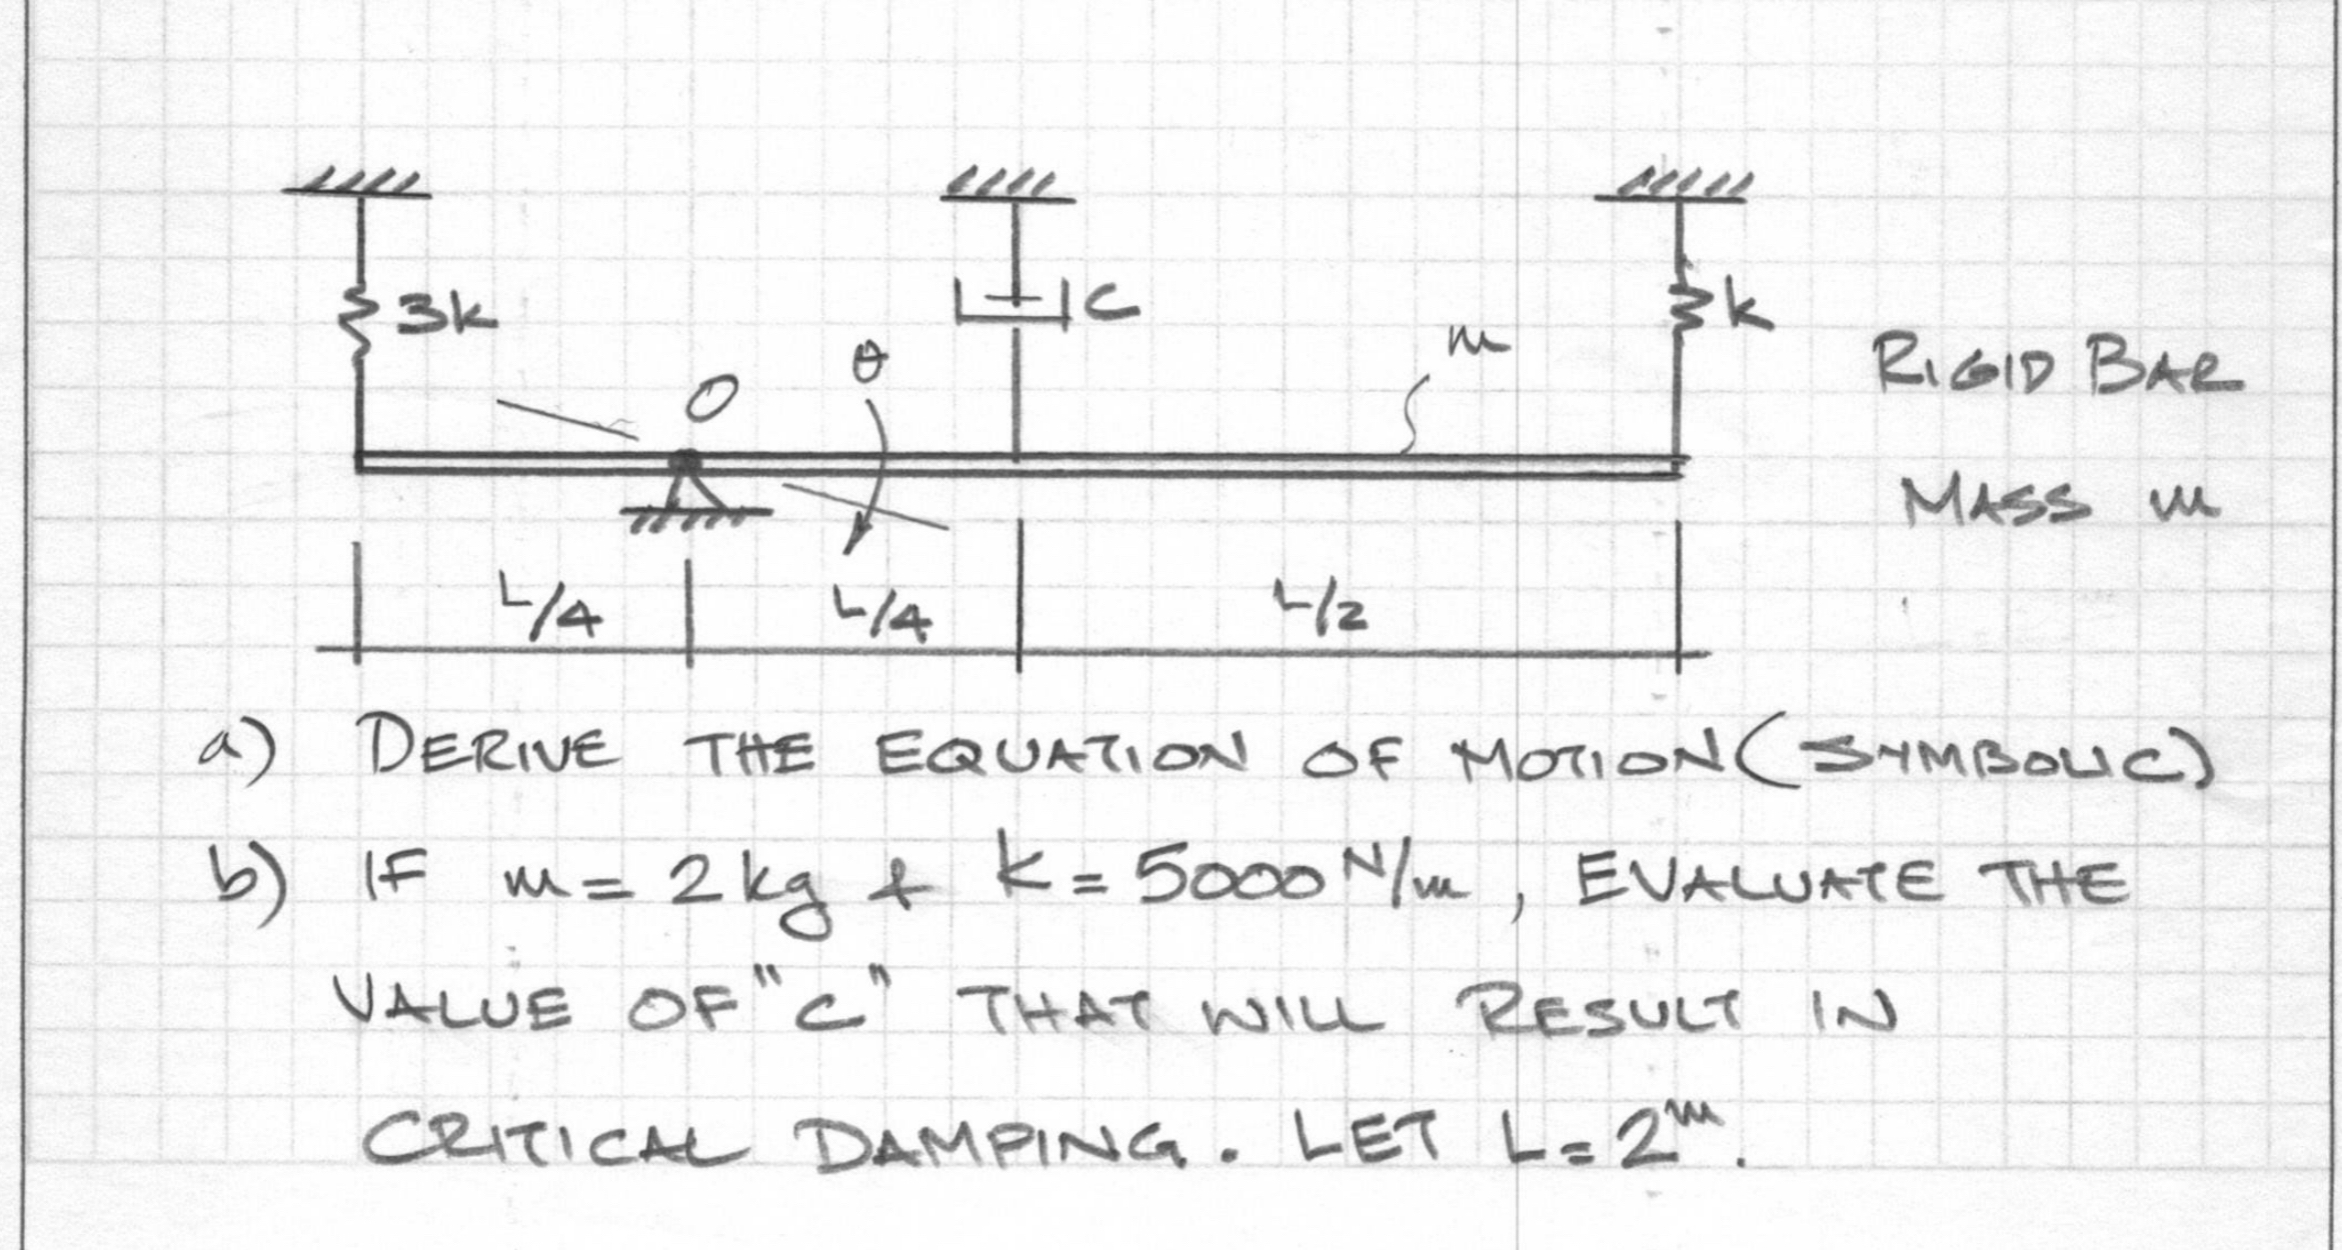 3k
C
k
θ
O
m
RIGID BAR
MASS m
L/4
L/4
L/2
a) DERIVE THE EQUATION OF MOTION (SYMBOLIC)
b) IF m = 2 kg + k = 5000 N/m, EVALUATE THE
VALUE OF "C" THAT WILL RESULT IN
CRITICAL DAMPING. LET L = 2m.